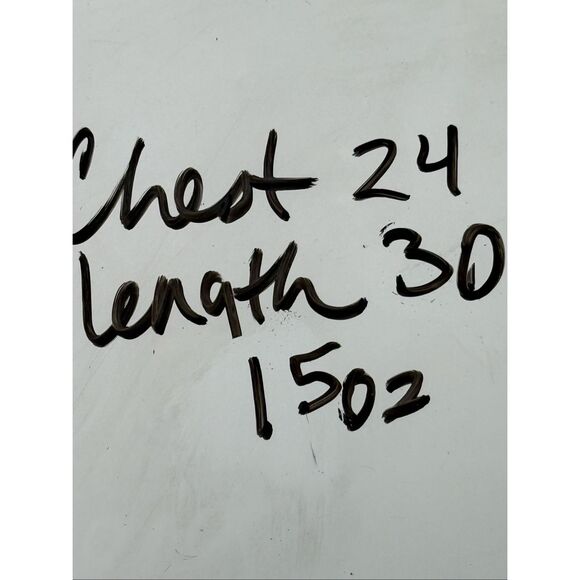 Chest 24
Length 30
15oz